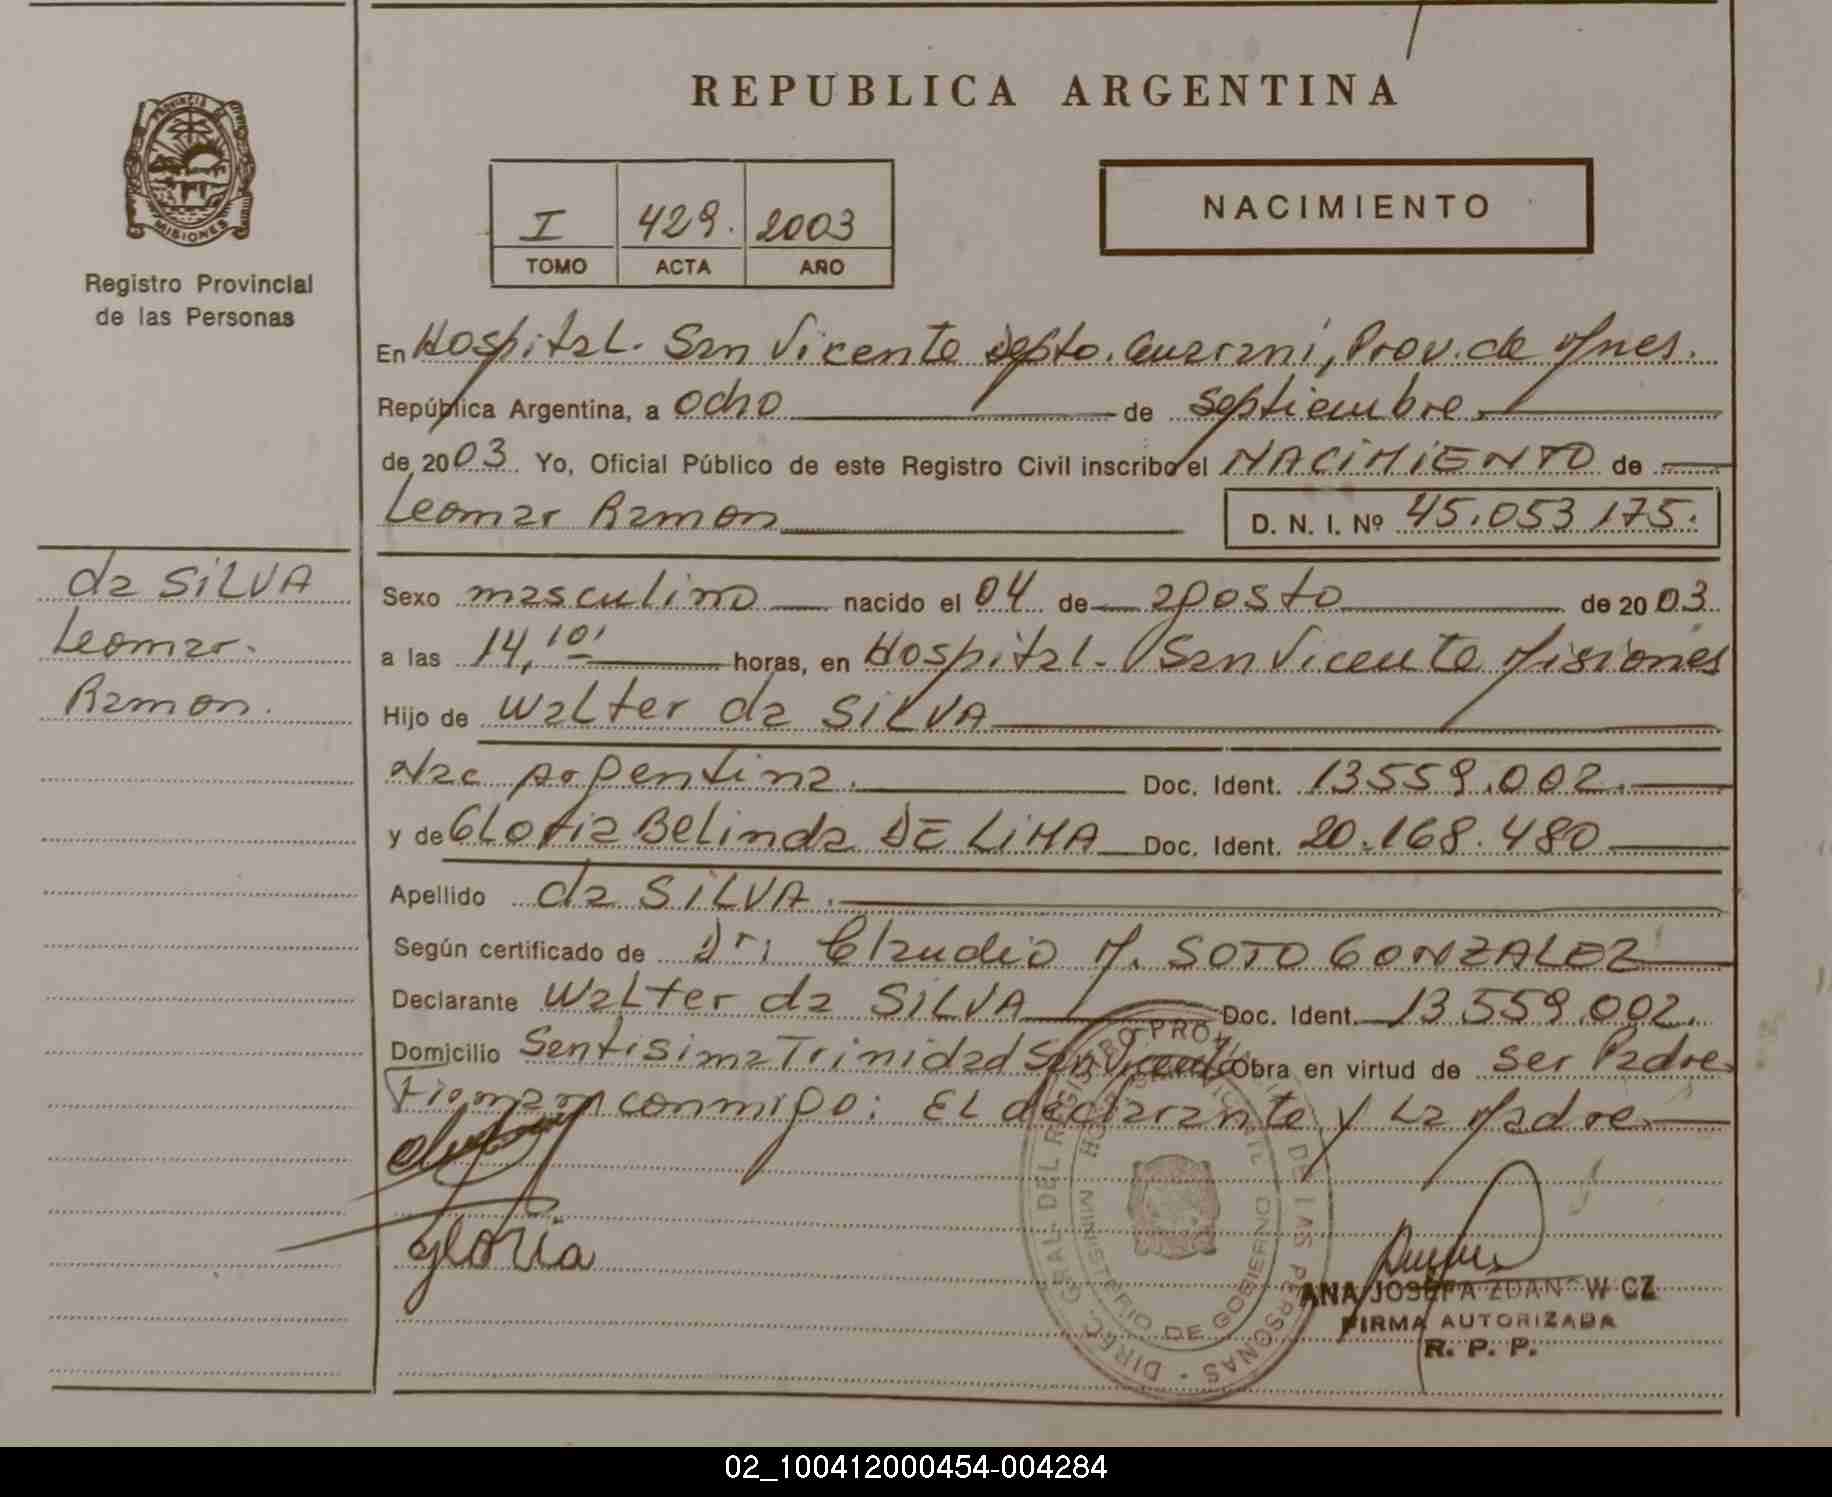 REPUBLICA ARGENTINA
PROVINCIA DE
MISIONES
Registro Provincial
de las Personas
I 429. 2003
TOMO ACTA AÑO
NACIMIENTO
En Hospital. San Vicente Depto. Guarani, Prov. de Mnes.
República Argentina, a ocho de septiembre
de 2003 Yo, Oficial Público de este Registro Civil inscribo el NACIMIENTO de
Leomar Ramon D. N. I. Nº 45.053.175.
da SILVA
Leomar.
Ramon.
Sexo masculino nacido el 04 de agosto de 2003.
a las 14,10' horas, en Hospital. San Vicente Misiones
Hijo de Walter da SILVA
Nac Argentina. Doc. Ident. 13.559.002.
y de Gloria Belinda DE LIMA Doc. Ident. 20.168.480
Apellido da SILVA.
Según certificado de Dr. Claudio M. SOTO GONZALEZ
Declarante Walter da SILVA Doc. Ident. 13.559.002.
Domicilio Santisima Trinidad San Vicente Obra en virtud de ser Padre
Firman conmigo: El declarante y La Madre.
gloria
DIREC. GRAL. DEL REGISTRO PROV. DE LAS PERSONAS
MINISTERIO DE GOBIERNO
ANA JOSEFA ZDANOWICZ
FIRMA AUTORIZADA
R. P. P.
02_100412000454-004284